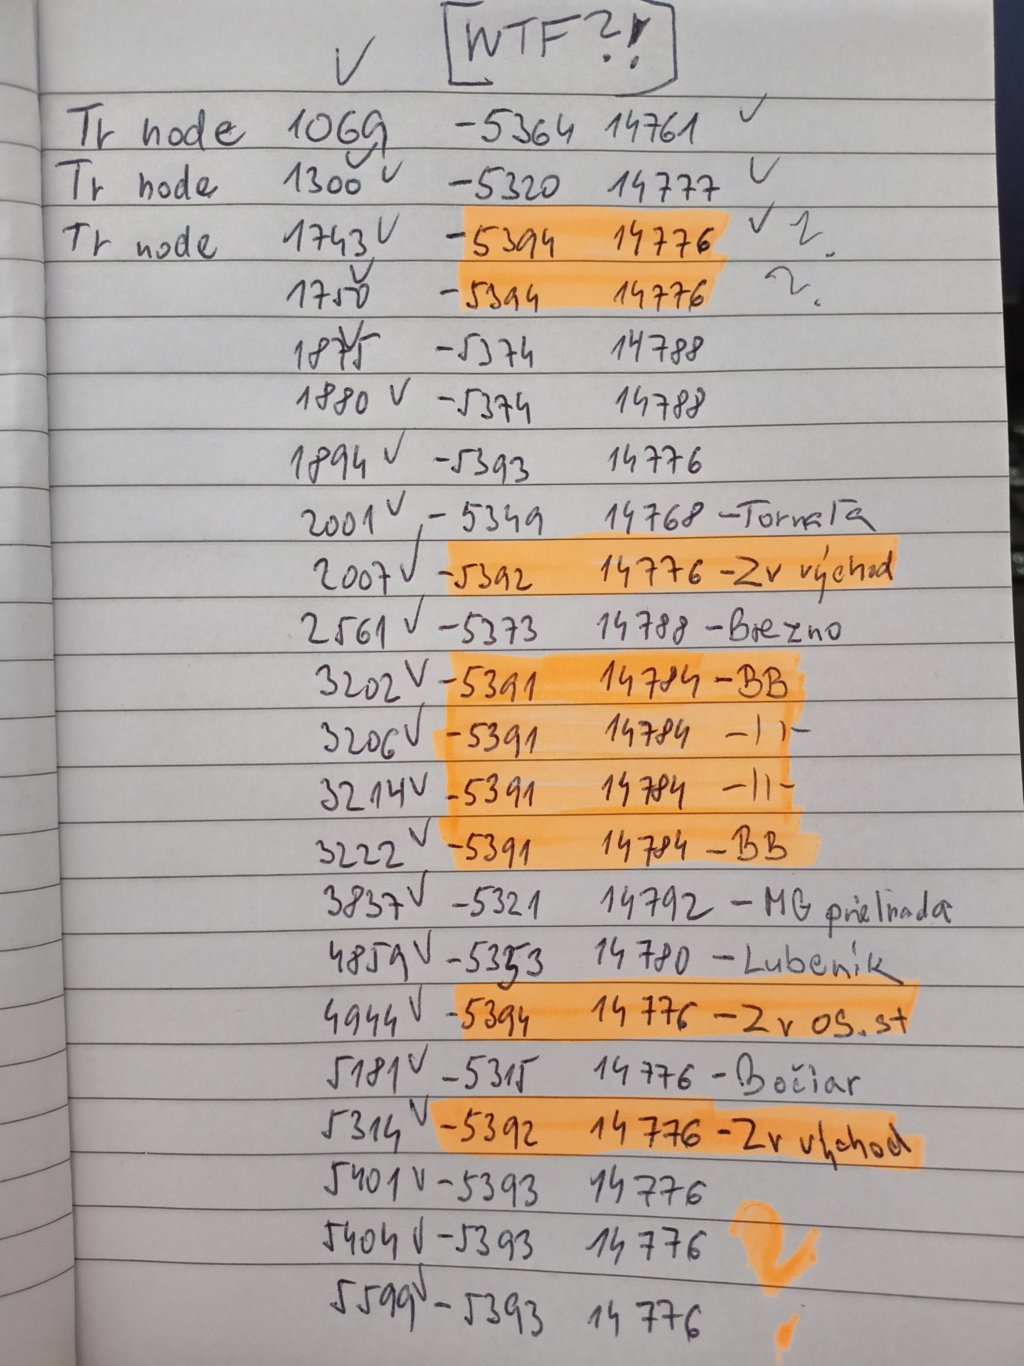 ✓ [WTF?!]
Tr node 1069 -5364 14761 ✓
Tr node 1300 ✓ -5320 14777 ✓
Tr node 1743 ✓ -5394 14776 ✓ ?
1750 ✓ -5394 14776 ?
1875 ✓ -5374 14788
1880 ✓ -5374 14788
1894 ✓ -5393 14776
2001 ✓ -5349 14768 -Tornaľa
2007 ✓ -5392 14776 -Zv východ
2561 ✓ -5373 14788 -Brezno
3202 ✓ -5391 14784 -BB
3206 ✓ -5391 14784 -11-
3214 ✓ -5391 14784 -11-
3222 ✓ -5391 14784 -BB
3837 ✓ -5321 14792 -MG prielnada
4859 ✓ -5353 14780 -Lubenik
4944 ✓ -5394 14776 -Zv os.st
5181 ✓ -5315 14776 -Bočiar
5314 ✓ -5392 14776 -Zv východ
5401 ✓ -5393 14776
5404 ✓ -5393 14776 ?!
5599 ✓ -5393 14776